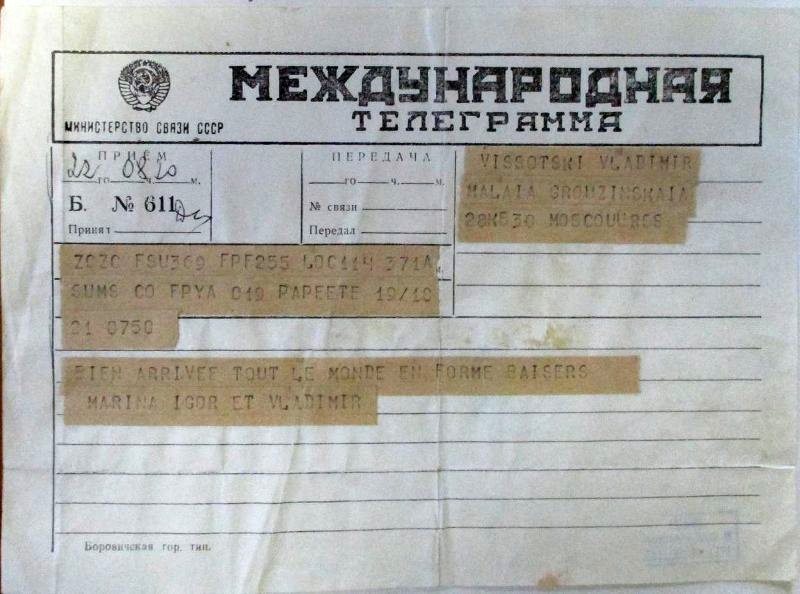 МЕЖДУНАРОДНАЯ
ТЕЛЕГРАММА
МИНИСТЕРСТВО СВЯЗИ СССР
ПРИЁМ
22 го 08 ч. 20 м.
Б. № 611
Принят
ПЕРЕДАЧА
го ч. м.
№ связи
Передал
VISSOTSKI VLADIMIR
MALAIA GROUZINSKAIA
28K530 MOSCOUURSS
ZCZC FSU369 FPF255 LOC114 371A
SUMS CO FPYA 019 PAPEETE 19/18
21 0750
BIEN ARRIVEE TOUT LE MONDE EN FORME BAISERS
MARINA IGOR ET VLADIMIR
Боровичская гор. тип.